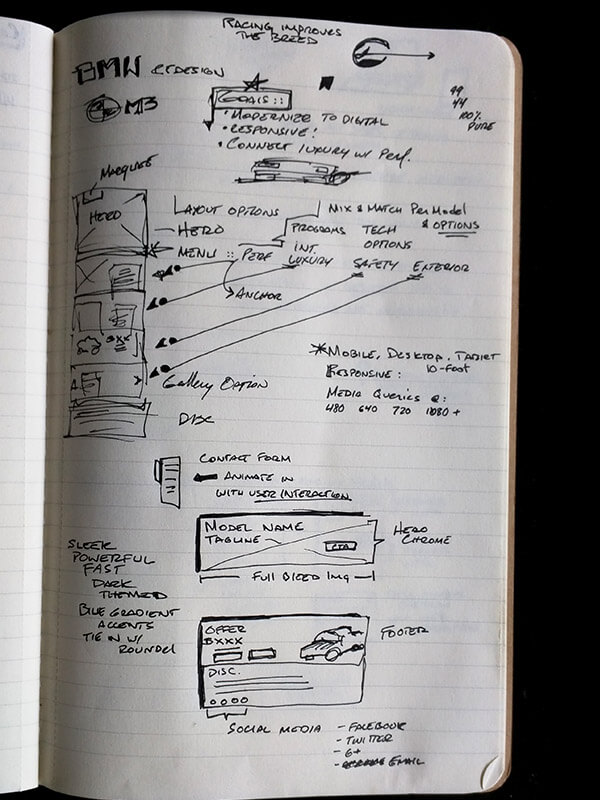 RACING IMPROVES
THE BREED
BMW REDESIGN
M3
GOALS ::
• MODERNIZE TO DIGITAL
• RESPONSIVE!
• CONNECT LUXURY W/ PERF.
99
44
100%
PURE
MARQUEE
HERO
LAYOUT OPTIONS
— HERO
MENU :: PERF
ANCHOR
MIX & MATCH PER MODEL
& OPTIONS
PROGRAMS
TECH
OPTIONS
INT.
LUXURY
SAFETY
EXTERIOR
GALLERY OPTION
DISC
* MOBILE, DESKTOP, TABLET
RESPONSIVE: 10-FOOT
MEDIA QUERIES @:
480 640 720 1080+
CONTACT FORM
ANIMATE IN
WITH USER INTERACTION
MODEL NAME
TAGLINE
CTA
HERO
CHROME
FULL BLEED IMG
SLEEK
POWERFUL
FAST
DARK
THEMED
BLUE GRADIENT
ACCENTS
TIE IN W/
ROUNDEL
OFFER
$XXX
DISC.
FOOTER
SOCIAL MEDIA
- FACEBOOK
- TWITTER
- G+
EMAIL